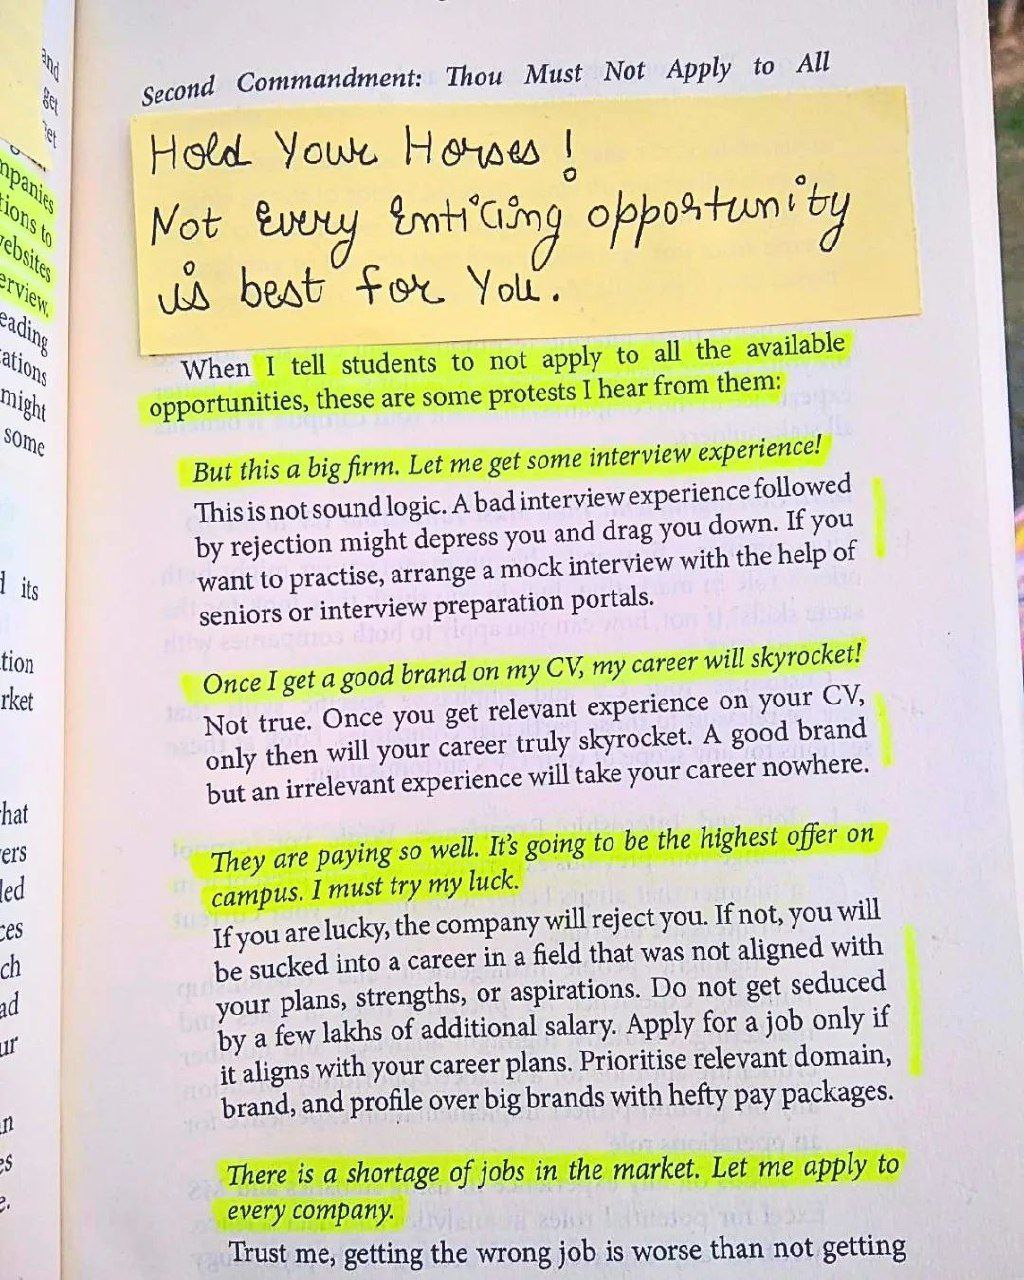 and
get
Second Commandment: Thou Must Not Apply to All
Hold Your Horses!
Not Every Enticing opportunity
is best for You.
mpanies
tions to
ebsites
erview.
eading
ations
might
some
d its
tion
rket
hat
ers
led
ces
ch
ad
ur
n
es
e.
When I tell students to not apply to all the available
opportunities, these are some protests I hear from them:
But this a big firm. Let me get some interview experience!
This is not sound logic. A bad interview experience followed
by rejection might depress you and drag you down. If you
want to practise, arrange a mock interview with the help of
seniors or interview preparation portals.
Once I get a good brand on my CV, my career will skyrocket!
Not true. Once you get relevant experience on your CV,
only then will your career truly skyrocket. A good brand
but an irrelevant experience will take your career nowhere.
They are paying so well. It's going to be the highest offer on
campus. I must try my luck.
If you are lucky, the company will reject you. If not, you will
be sucked into a career in a field that was not aligned with
your plans, strengths, or aspirations. Do not get seduced
by a few lakhs of additional salary. Apply for a job only if
it aligns with your career plans. Prioritise relevant domain,
brand, and profile over big brands with hefty pay packages.
There is a shortage of jobs in the market. Let me apply to
every company.
Trust me, getting the wrong job is worse than not getting